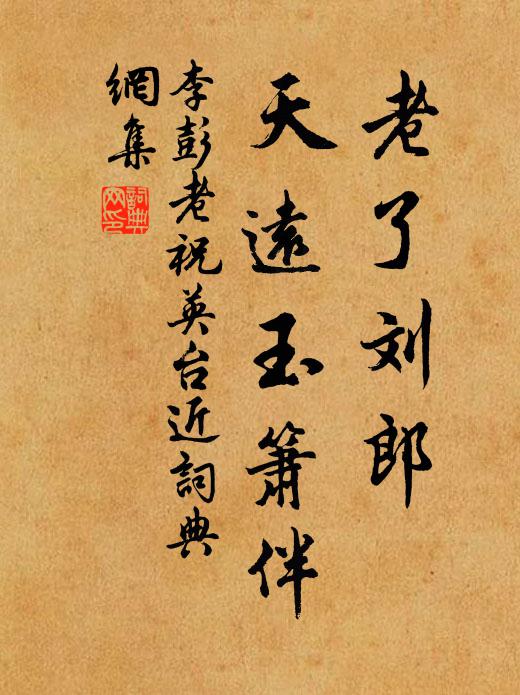 老了刘郎
天遠玉簫伴
李彭老祝英台近詞典
網集
詞典
网印